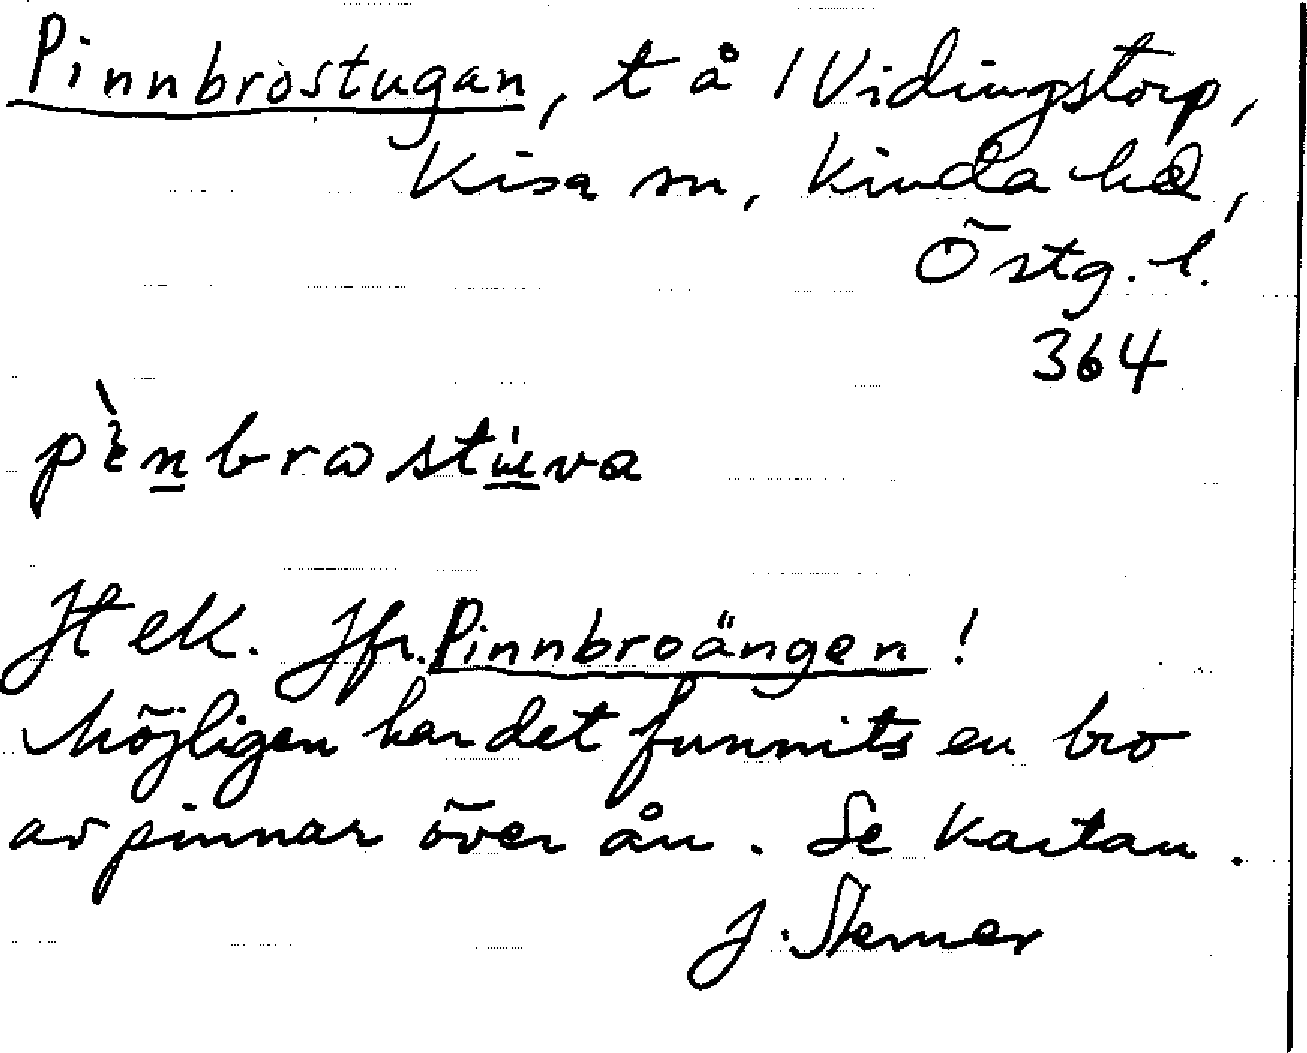 Pinnbrostugan, t å 1 Vidingstorp,
Kisa sn, Kinda hd,
Östg. l.
364
pènbrastùva
Jt ek. Jfr. Pinnbroängen!
Möjligen har det funnits en bro
av pinnar över ån. Se kartan.
J. Sterner